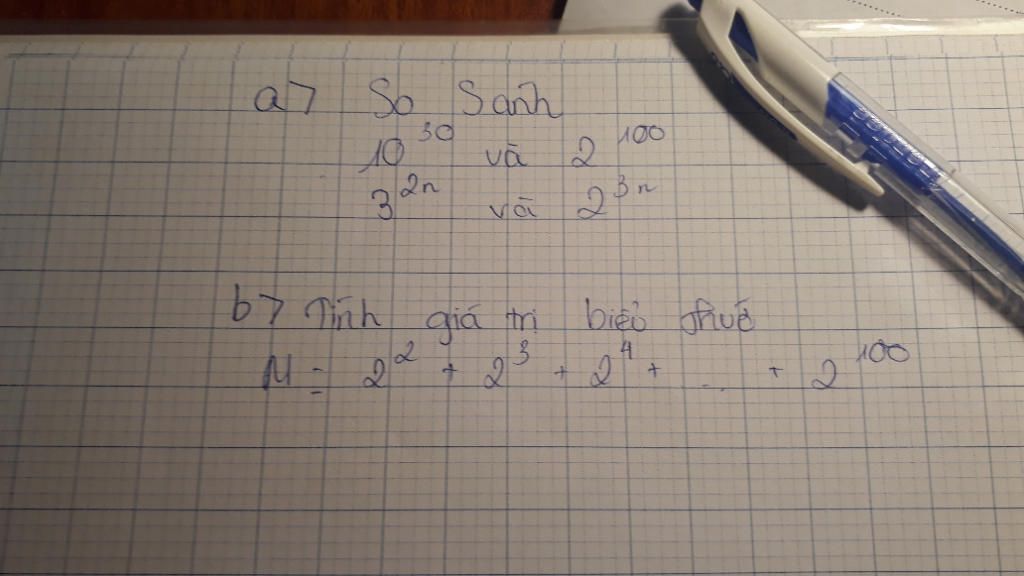 a> So Sánh
10^30 và 2^100
3^2n và 2^3n
b> Tính giá trị biểu thức
M = 2^2 + 2^3 + 2^4 + ... + 2^100